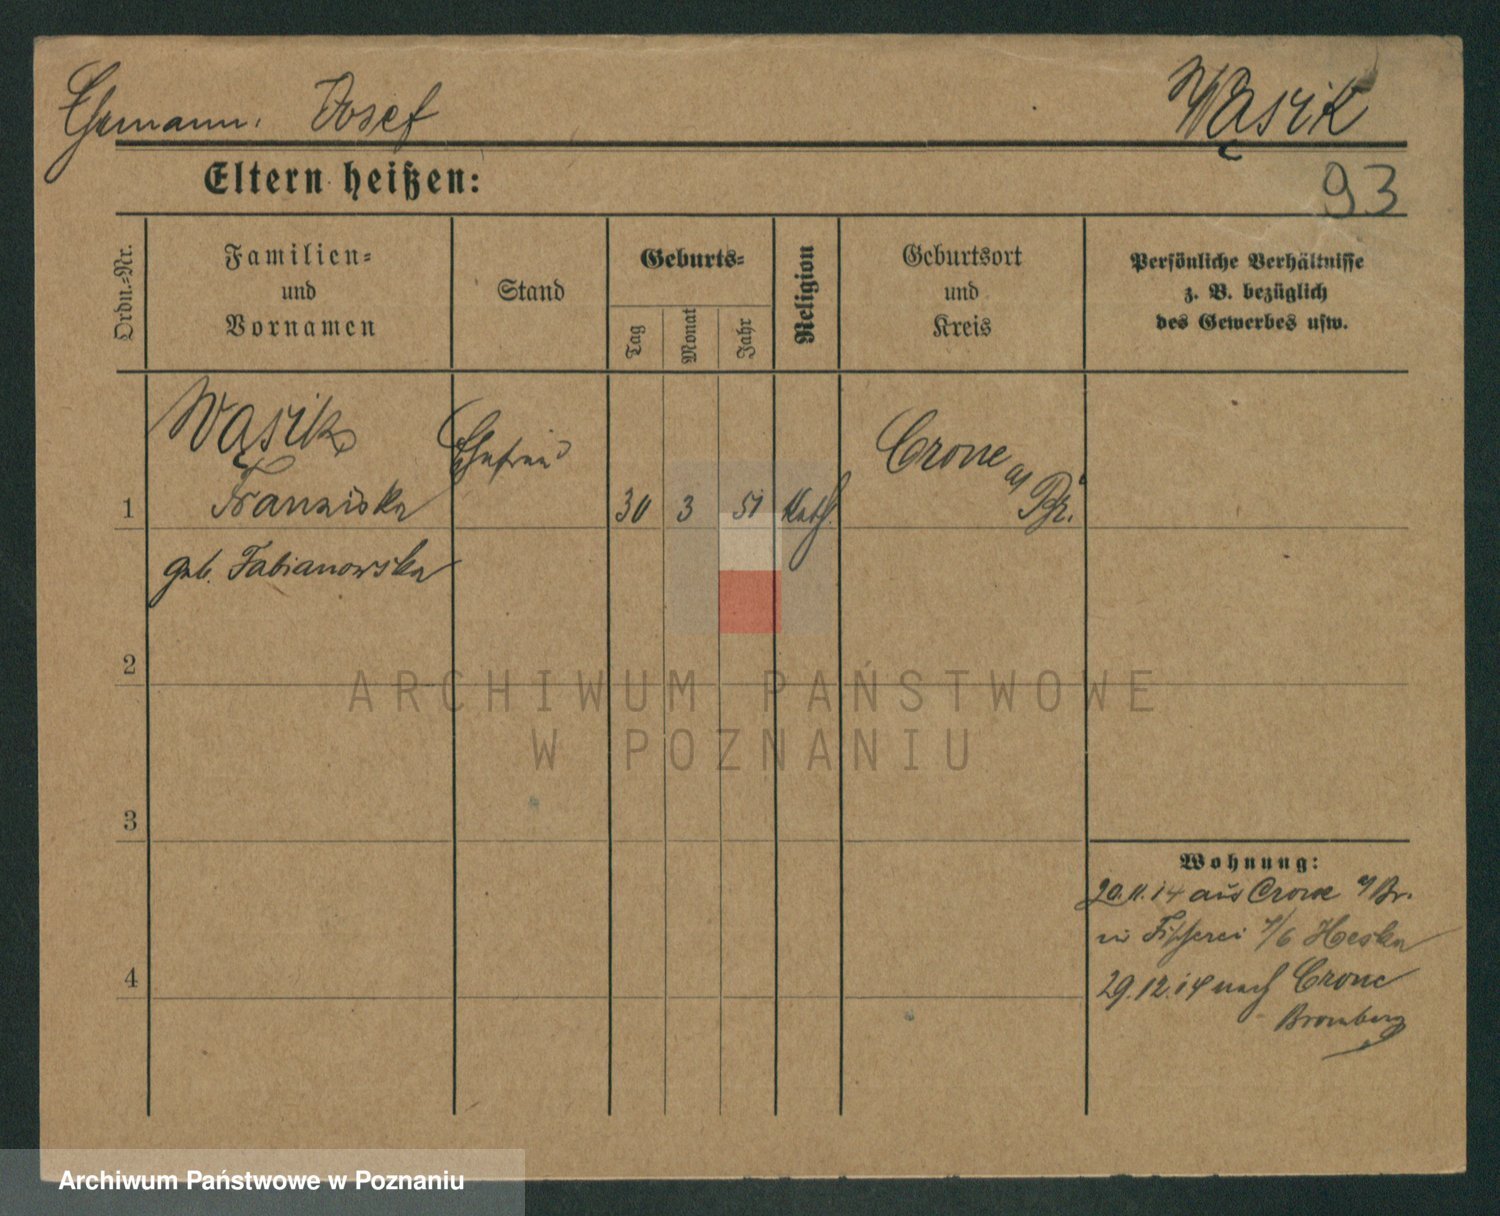 Ehemann: Josef Wąsik
Eltern heißen:
93
Ordn.-Nr.
Familien- und Vornamen
Stand
Geburts-
Tag
Monat
Jahr
Religion
Geburtsort und Kreis
Persönliche Verhältnisse
z. B. bezüglich
des Gewerbes usw.
Wąsik Ehefrau Crone a/
1 Franziska 30 3 51 Kath. Br.
geb. Fabianowska
2
3
4
Wohnung:
20.11.14 aus Crone a/Br.
in Fischerei 5/6 Heska
29.12.14 nach Crone
Bromberg
ARCHIWUM PAŃSTWOWE
W POZNANIU
Archiwum Państwowe w Poznaniu